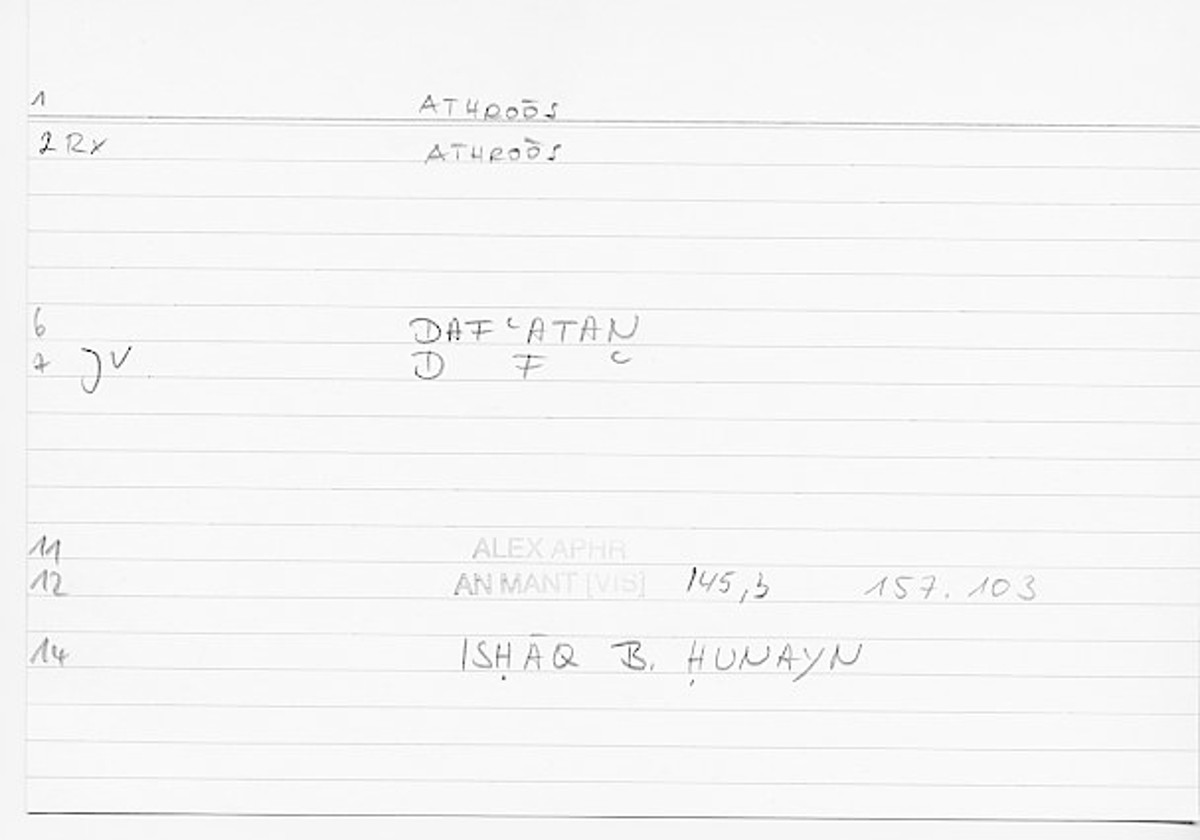 1 ATHROŌS
2 Rx ATHROŌS
6 DAFʿATAN
7 JV D F ʿ
11 ALEX APHR
12 AN MANT [VIS] 145,3 157.103
14 ISḤĀQ B. ḤUNAYN